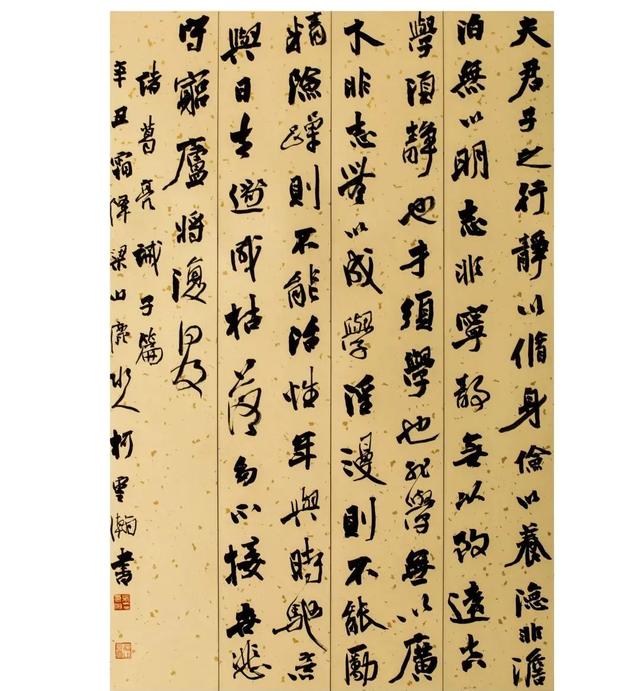 夫君子之行靜以脩身儉以養德非澹
泊無以明志非寧靜無以致遠夫
學須靜也才須學也非學無以廣
才非志無以成學淫漫則不能勵
精險躁則不能治性年與時馳意
與日去遂成枯落多不接世悲
守窮廬將復何及
諸葛亮誡子篇
辛丑霜降梁山人柯雲瀚書